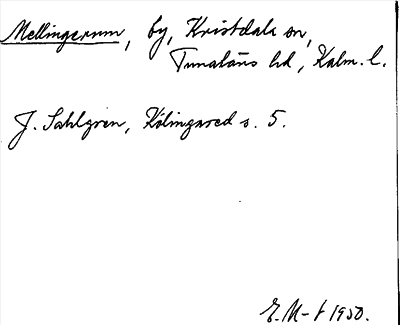 Mellingerum, by, Kristdala sn,
Tunaläns hd, Kalm. l.
J. Sahlgren, Kölingared s. 5.
E. M-t 1950.